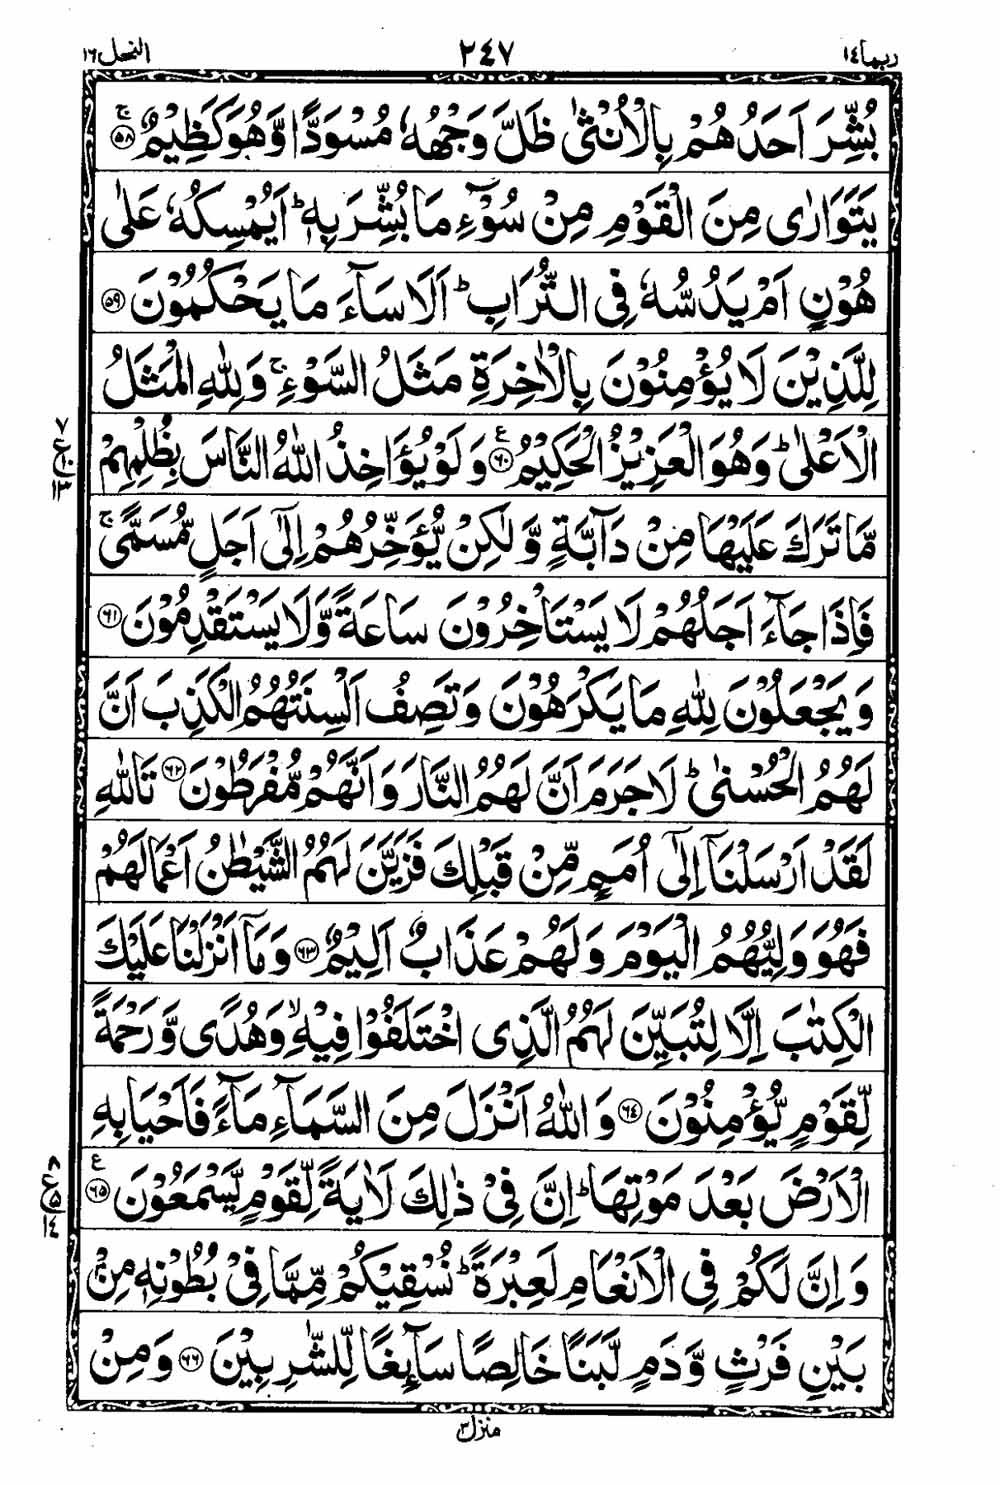 ربما ١٤ ٢٤٧ النحل ١٦
بُشِّرَ اَحَدُهُمْ بِالْاُنْثٰى ظَلَّ وَجْهُهٗ مُسْوَدًّا وَّهُوَ كَظِيْمٌ ۚ ﴿٥٨﴾
يَتَوَارٰى مِنَ الْقَوْمِ مِنْ سُوْٓءِ مَا بُشِّرَ بِهٖ ؕ اَيُمْسِكُهٗ عَلٰى
هُوْنٍ اَمْ يَدُسُّهٗ فِى التُّرَابِ ؕ اَلَا سَآءَ مَا يَحْكُمُوْنَ ﴿٥٩﴾
لِلَّذِيْنَ لَا يُؤْمِنُوْنَ بِالْاٰخِرَةِ مَثَلُ السَّوْءِ ۚ وَلِلّٰهِ الْمَثَلُ
الْاَعْلٰى ؕ وَهُوَ الْعَزِيْزُ الْحَكِيْمُ ﴿٦٠﴾ ع وَلَوْ يُؤَاخِذُ اللّٰهُ النَّاسَ بِظُلْمِهِمْ
٧ ع ١٠ ١٣
مَّا تَرَكَ عَلَيْهَا مِنْ دَآبَّةٍ وَّلٰكِنْ يُّؤَخِّرُهُمْ اِلٰٓى اَجَلٍ مُّسَمًّى ۚ
فَاِذَا جَآءَ اَجَلُهُمْ لَا يَسْتَاْخِرُوْنَ سَاعَةً وَّلَا يَسْتَقْدِمُوْنَ ﴿٦١﴾
وَيَجْعَلُوْنَ لِلّٰهِ مَا يَكْرَهُوْنَ وَتَصِفُ اَلْسِنَتُهُمُ الْكَذِبَ اَنَّ
لَهُمُ الْحُسْنٰى ؕ لَا جَرَمَ اَنَّ لَهُمُ النَّارَ وَاَنَّهُمْ مُّفْرَطُوْنَ ﴿٦٢﴾ تَاللّٰهِ
لَقَدْ اَرْسَلْنَآ اِلٰٓى اُمَمٍ مِّنْ قَبْلِكَ فَزَيَّنَ لَهُمُ الشَّيْطٰنُ اَعْمَالَهُمْ
فَهُوَ وَلِيُّهُمُ الْيَوْمَ وَلَهُمْ عَذَابٌ اَلِيْمٌ ﴿٦٣﴾ وَمَآ اَنْزَلْنَا عَلَيْكَ
الْكِتٰبَ اِلَّا لِتُبَيِّنَ لَهُمُ الَّذِى اخْتَلَفُوْا فِيْهِ ۙ وَهُدًى وَّرَحْمَةً
لِّقَوْمٍ يُّؤْمِنُوْنَ ﴿٦٤﴾ وَاللّٰهُ اَنْزَلَ مِنَ السَّمَآءِ مَآءً فَاَحْيَا بِهِ
الْاَرْضَ بَعْدَ مَوْتِهَا ؕ اِنَّ فِيْ ذٰلِكَ لَاٰيَةً لِّقَوْمٍ يَّسْمَعُوْنَ ﴿٦٥﴾ ع
٨ ع ٥ ١٤
وَاِنَّ لَكُمْ فِى الْاَنْعَامِ لَعِبْرَةً ؕ نُسْقِيْكُمْ مِّمَّا فِيْ بُطُوْنِهٖ مِنْۢ
بَيْنِ فَرْثٍ وَّدَمٍ لَّبَنًا خَالِصًا سَآئِغًا لِّلشّٰرِبِيْنَ ﴿٦٦﴾ وَمِنْ
منزل ٣